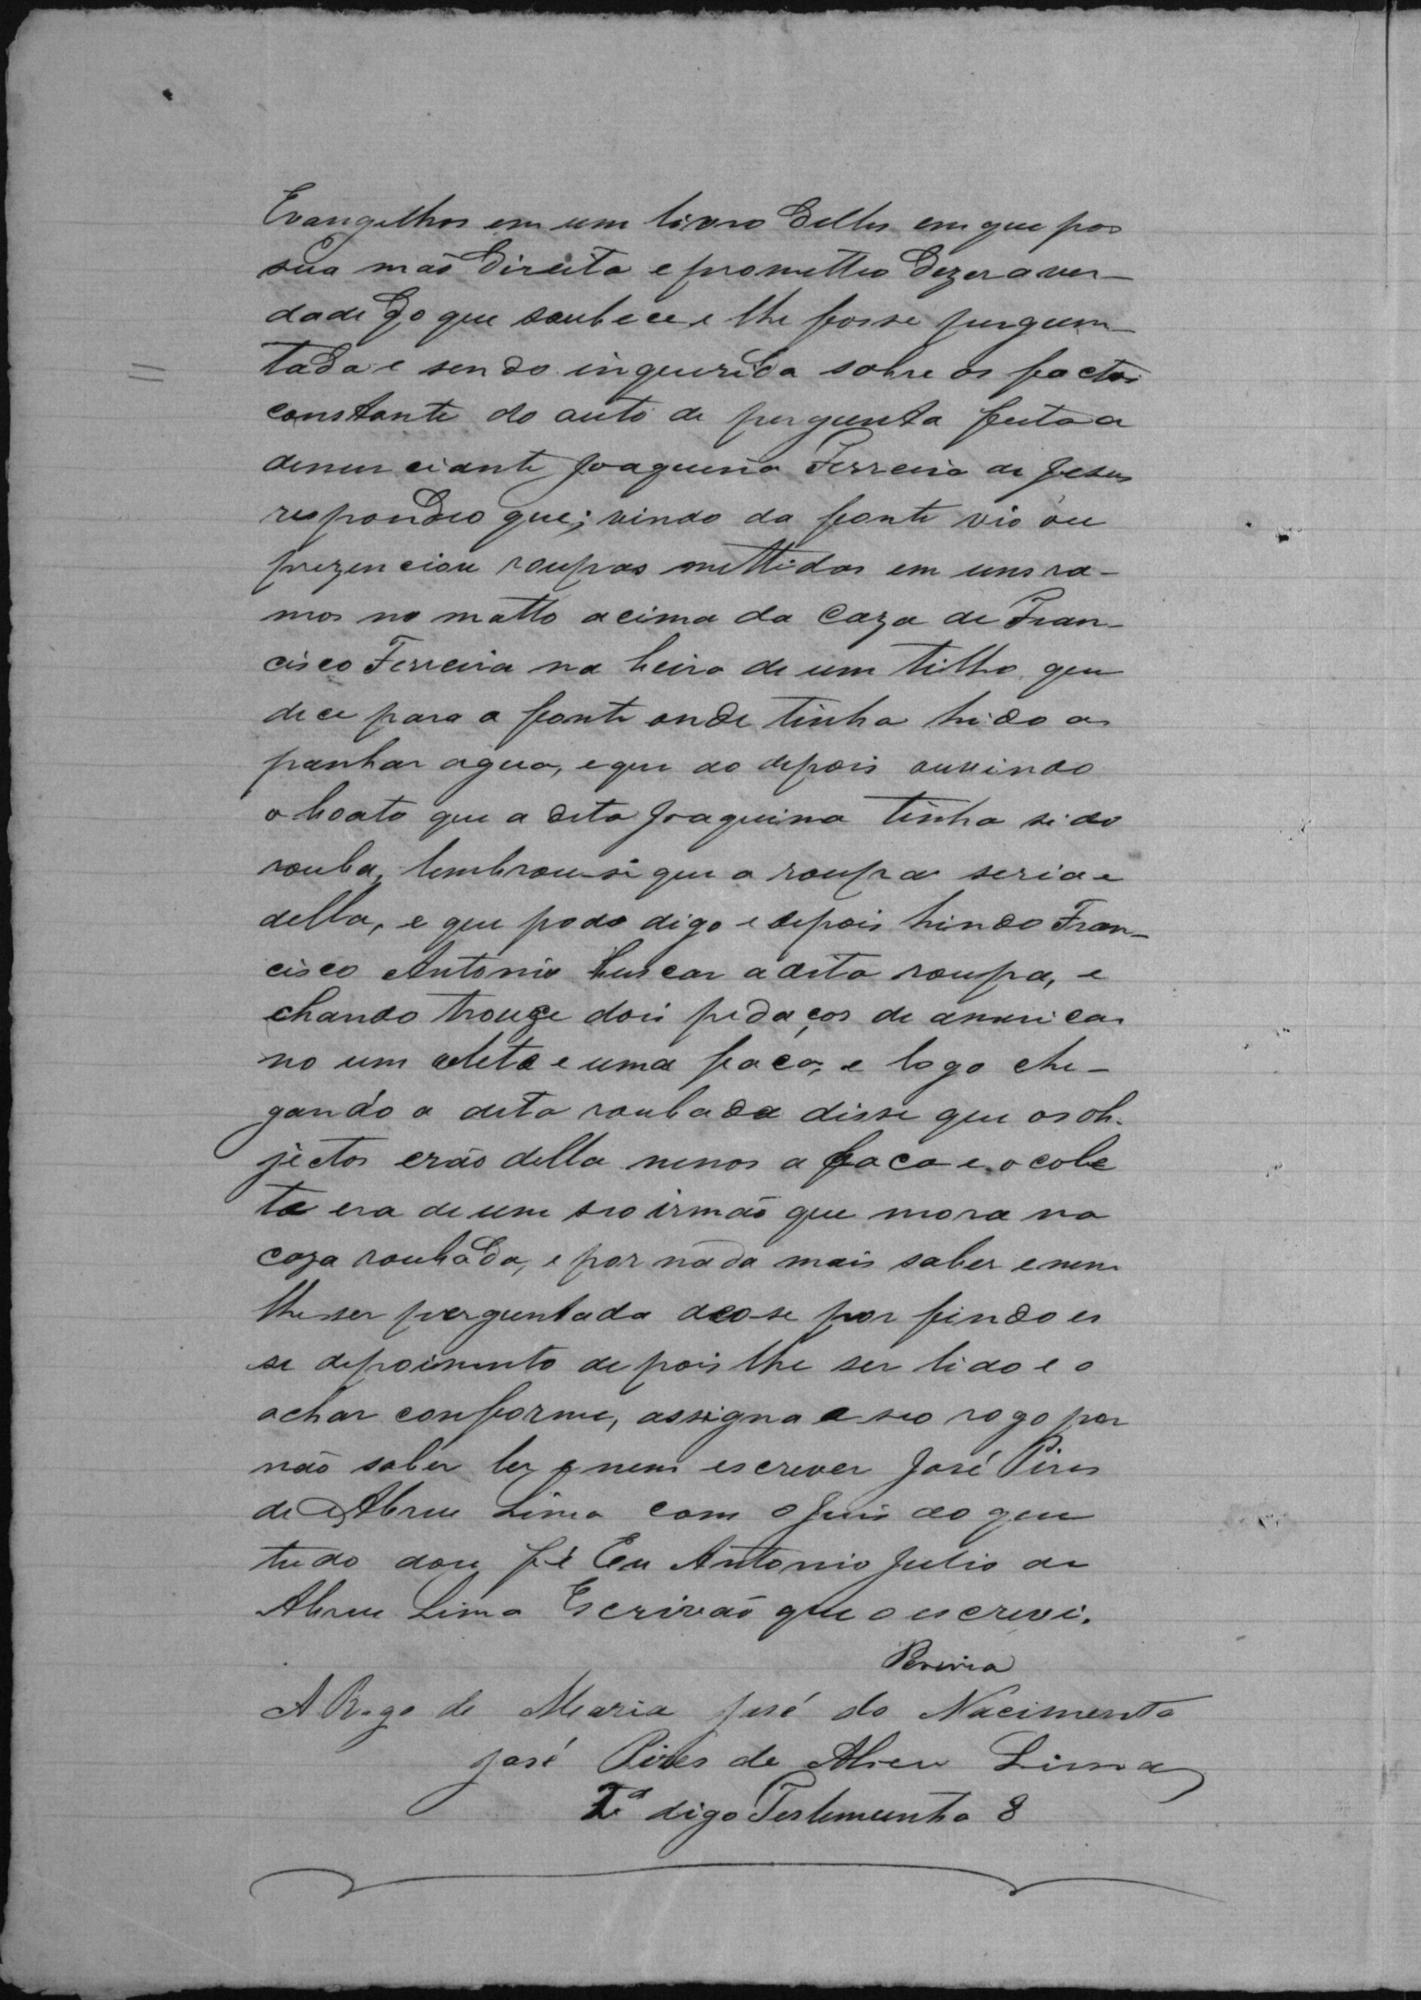 Evangelhos em um livro delles em que pos
sua mão direita e prometteo dezer a ver-
dade do que soubece e lhe fosse pergum-
tada e sendo inquerida sobre os factos
constante do auto de pergunta feita a
denunciante Joaquina Ferreira de Jesus
respondeo que; vindo da fonte vio ou
prezenciou roupas mettidas em uns ra-
mos no matto acima da caza de Fran-
cisco Ferreira na beira de um trilho que
dece para a fonte onde tinha hido a
panhar agua, e que ao depois ouvindo
o boato que a dita Joaquina tinha sido
rouba, lembrou-si que a roupa seria e
della, e que podo digo e depois hindo Fran-
cisco Antonio buscar a dita roupa, e
chando trouçe dois pedaços de america
no um colete e uma faca, e logo che-
gando a dita roubada disse que os ob-
jectos erão della menos a faca e o cole
te era de um seo irmão que mora na
caza roubada, e por nada mais saber e nem
lhe ser perguntada deo-se por findo es
se depoimento depois lhe ser lido e o
achar conforme, assigna a seo rogo por
não saber ler e nem escrever José Pires
de Abreu Lima com o Juis do que
tudo dou fé Eu Antonio Julio de
Abreu Lima Escrivão que o escrevi.
Pereira
A Rogo de Maria José do Nacimento
José Pires de Abreu Lima
digo Testemunha 8